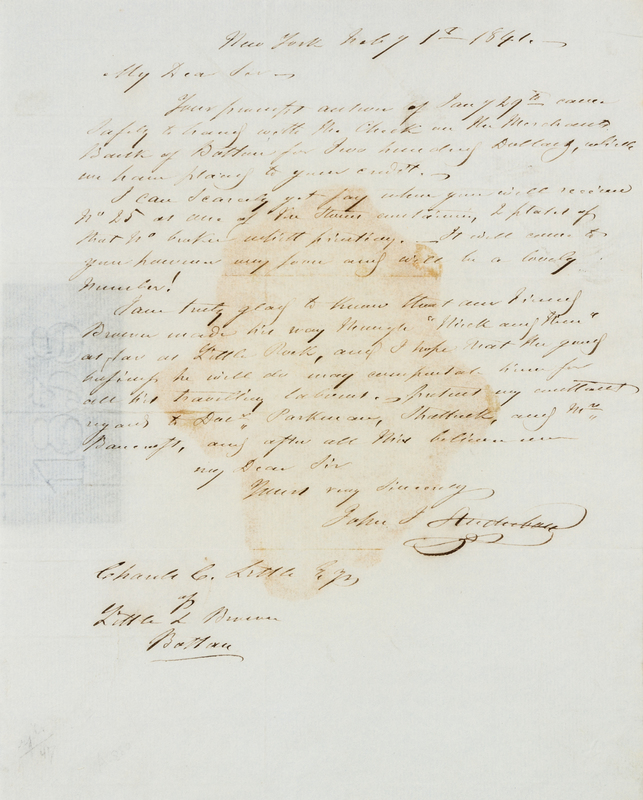 New York Feby 1st 1841.
My Dear Sir
Your prompt answer of Jany 29th came
safely to hand with the Check on the Merchants
Bank of Boston for Two hundred Dollars, which
we have placed to your credit.
I can scarcely yet say when you will receive
No 25 as one of the Stones containing 2 plates of
that No broke whilst printing. It will come to
you however very soon and will be a lovely
Number!
I am truly glad to know that our Friend
Brown made his way through "thick and thin"
as far as Little Rock, and I hope that the good
business he will do may compensate him for
all his travelling labours. present my
regards to Docrs Parkman, Shattuck, and Mrs
Bancroft, and after all this believe me
my Dear Sir
Yours very Sincerely
John J. Audubon
Charles C. Little Esqr
of
Little & Brown
Boston